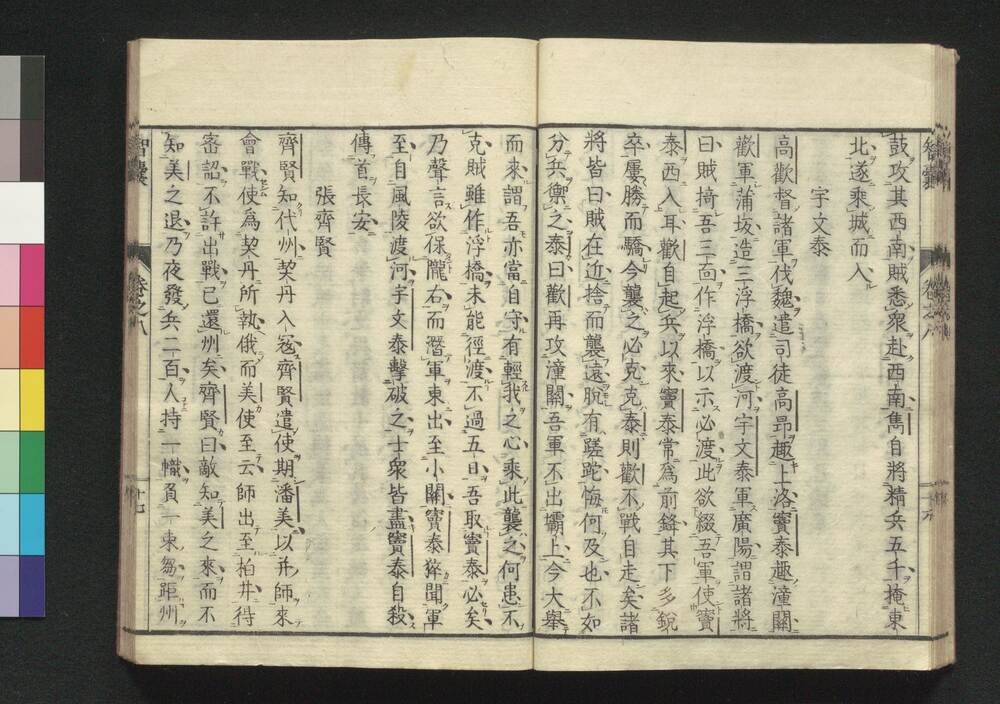 鼓攻其西南賊悉衆赴西南雋自將精兵五千掩東
北遂乘城而入
宇文泰
高歡督諸軍伐魏遣司徒高昂趣上洛竇泰趣潼關
歡軍蒲坂造三浮橋欲渡河宇文泰軍廣陽謂諸將
曰賊掎吾三向作浮橋以示必渡此欲綴吾軍使竇
泰西入耳歡自起兵以來竇泰常爲前鋒其下多銳
卒屢勝而驕今襲之必克克泰則歡不戰自走矣諸
將皆曰賊在近捨而襲遠脫有蹉跎悔何及也不如
分兵禦之泰曰歡再攻潼關吾軍不出壩上今大舉
而來謂吾亦當自守有輕我之心乘此襲之何患不
克賊雖作浮橋未能徑渡不過五日吾取竇泰必矣
乃聲言欲保隴右而潛軍東出至小關竇泰猝聞軍
至自風陵渡河宇文泰擊破之士衆皆盡竇泰自殺
傳首長安
張齊賢
齊賢知代州契丹入冦齊賢遣使期潘美以幷師來
會戰使爲契丹所執俄而美使至云師出至柏井得
密詔不許出戰已還州矣齊賢曰敵知美之來而不
知美之退乃夜發兵二百人持一幟負一束芻距州
智囊
卷之八
十七